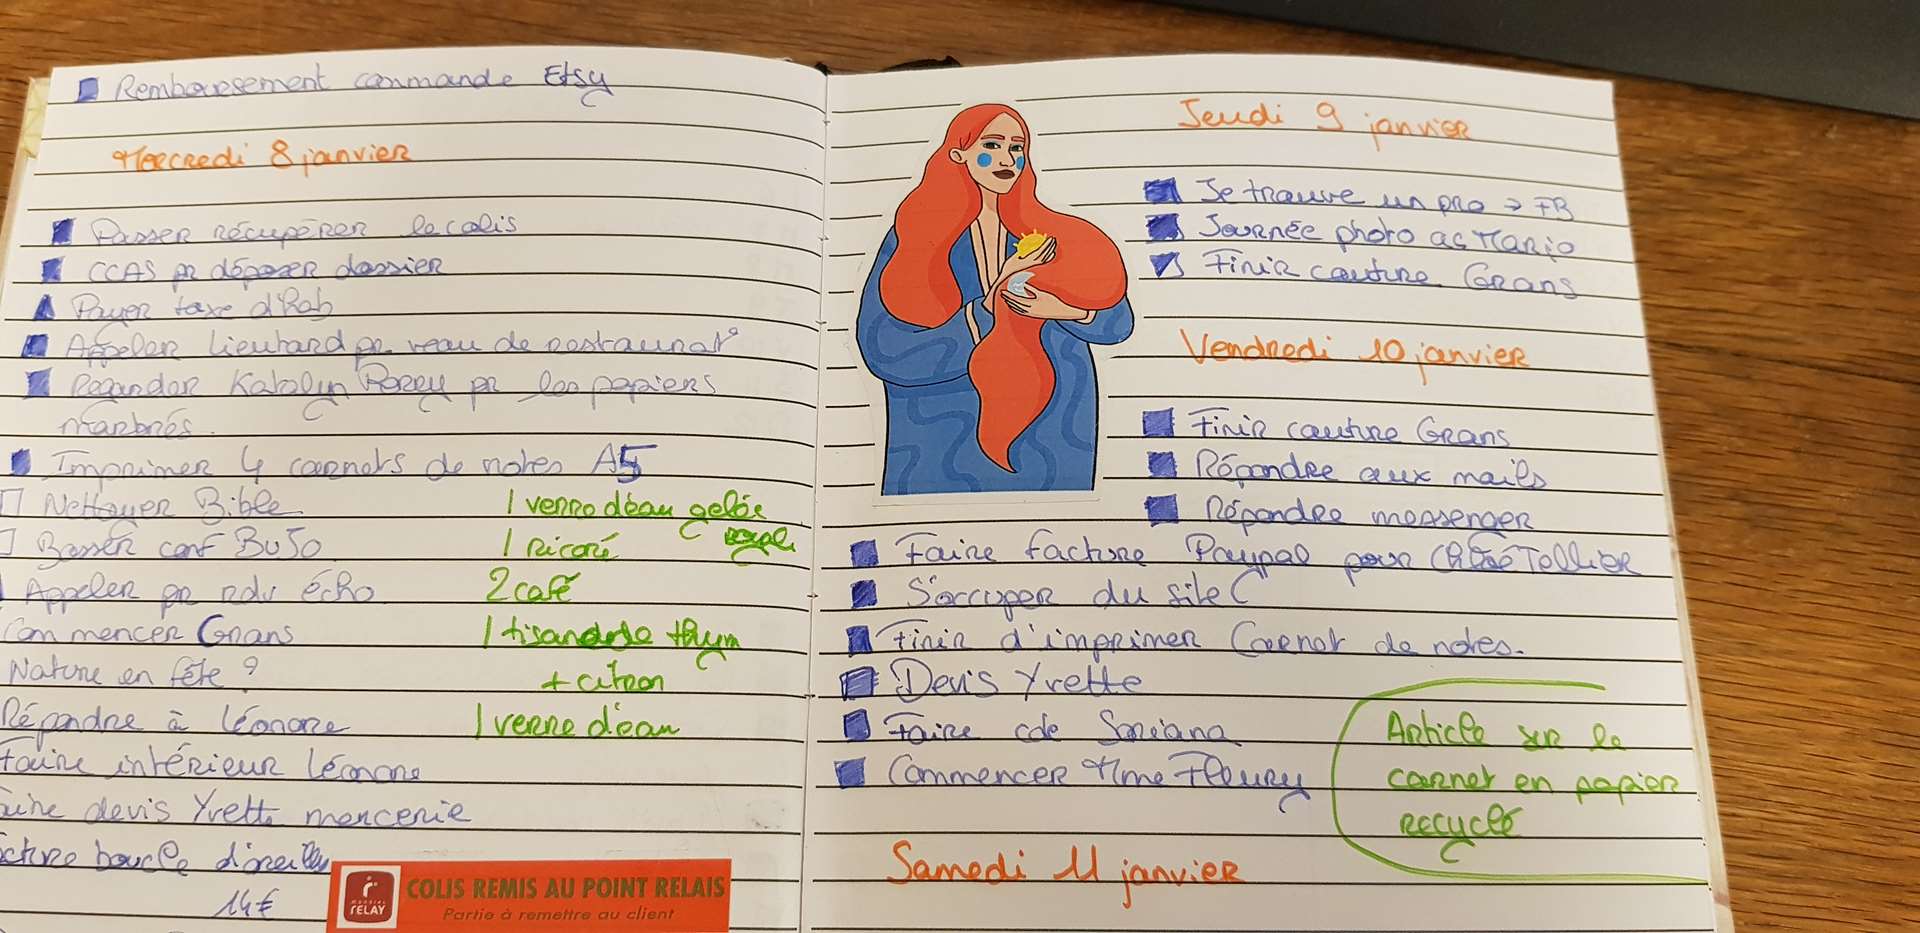 Remboursement commande Etsy
Mercredi 8 janvier
Passer récupérer le colis
CCAS pr déposer dossier
Payer taxe d'hab
Appeler Lieutard pr veau de restaurat°
Regarder Katalyn Perry pr les papiers
marbrés.
Imprimer 4 carnets de notes A5
Nettoyer Bible
Bosser conf BuJo
Appeler pr rdv écho
Commencer Grans
Nature en fête ?
Répondre à Léonore
Faire intérieur Léonore
aire devis Yvette mercerie
cture boucle d'oreilles
14€
1 verre d'eau gelée
1 ricoré
2 café
1 tisane de thym
+ citron
1 verre d'eau
RELAY
COLIS REMIS AU POINT RELAIS
Partie à remettre au client
Jeudi 9 janvier
Je trouve un pro → FB
Journée photo ac Mario
Finir couture Grans
Vendredi 10 janvier
Finir couture Grans
Répondre aux mails
Répondre messenger
Faire facture Paypal pour Chloé Tollier
S'occuper du site C
Finir d'imprimer Carnet de notes.
Devis Yvette
Faire cde Soriana
Commencer Mme Fleury
Article sur le
carnet en papier
recyclé
Samedi 11 janvier